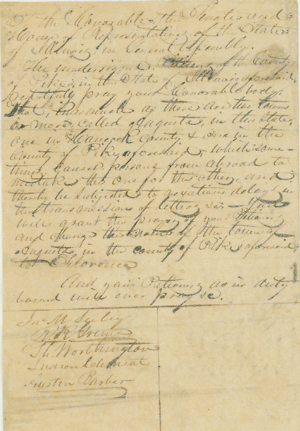 To the Honorable the Senate and
House of Representatives of the State
of Illinois in General Assembly:
The undersigned citizens of the County
of Pike in the State of Illinois aforesaid
pray your Honorable body
that, inasmuch as there are two towns
or more called Augusta, in this State,
one in Hancock County & one in the
County of Pike aforesaid & which some-
times causes persons from abroad to
mistake the one for the other, and
thereby be subjected to
in the transmission of letters &c.
will grant the prayer of your Petitioners
and change the name of the town of
Augusta, in the county of Pike aforesaid
to Florence
And your Petitioners as in duty
bound will ever pray &c.
Jno M. Seeley
T. Worthington
Austin Barber